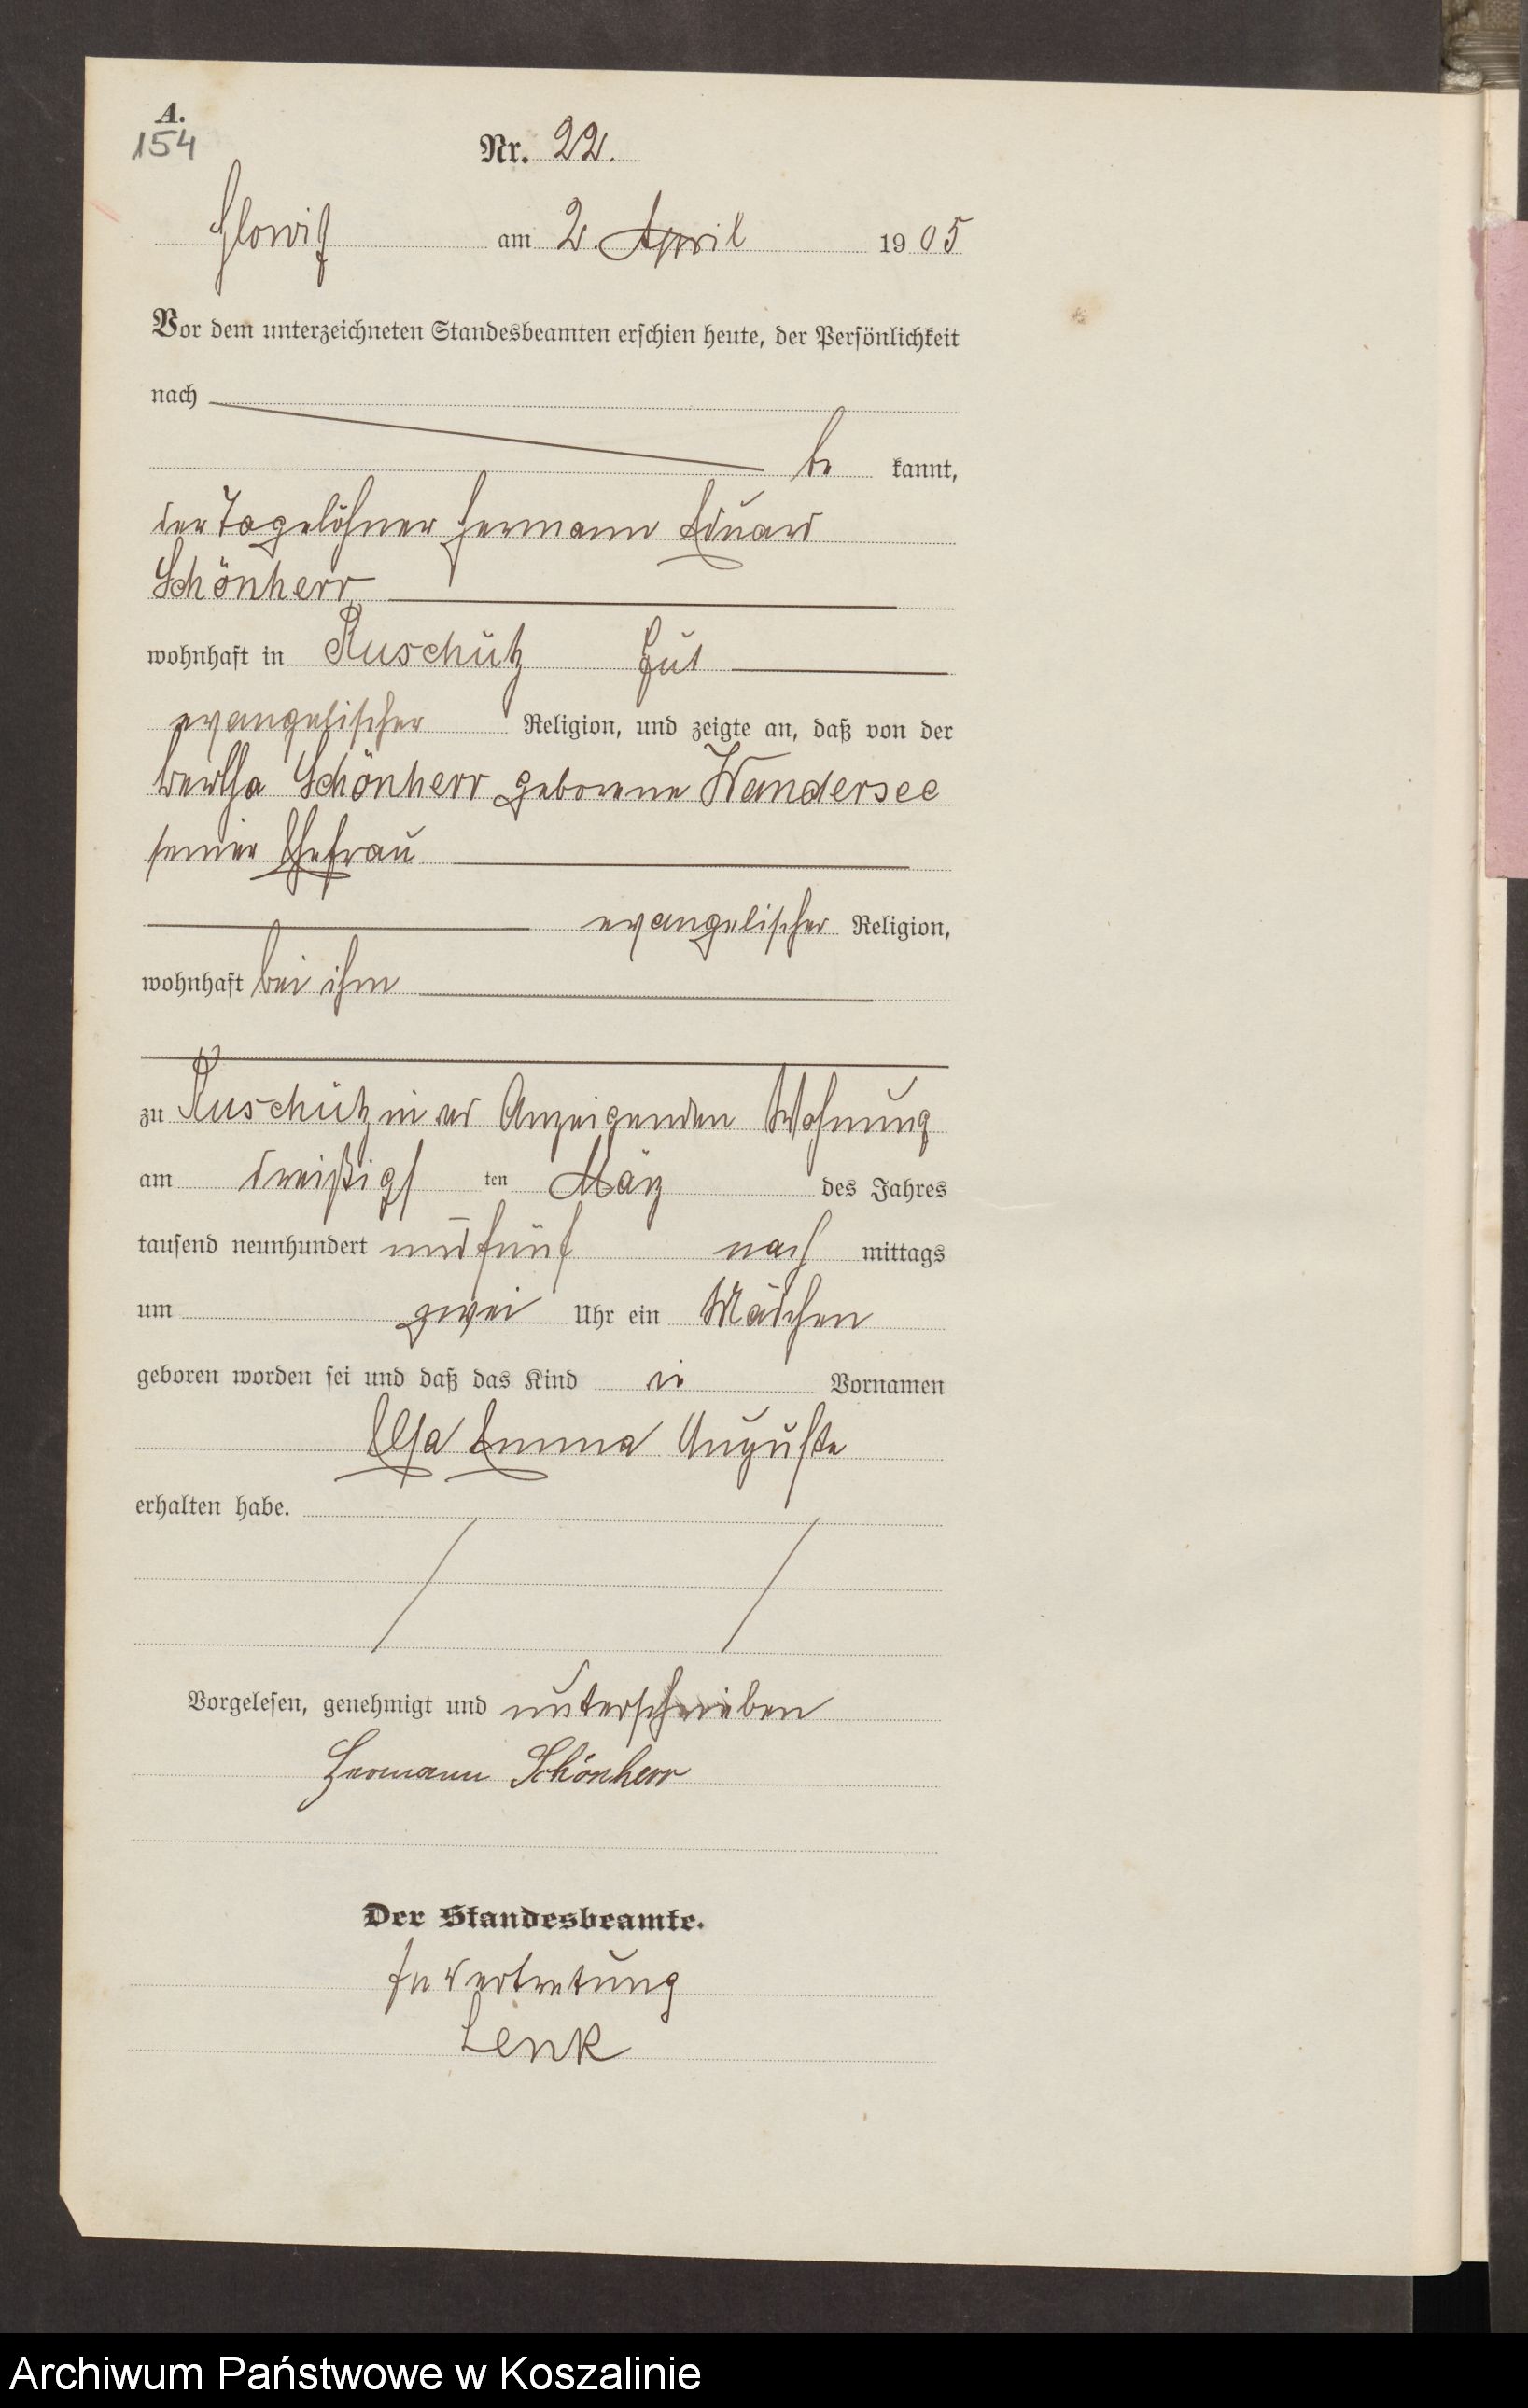 A.
154
Nr. 22.
Glowitz am 2. April 1905
Vor dem unterzeichneten Standesbeamten erschien heute, der Persönlichkeit
nach
be kannt,
der Tagelöhner Hermann Eduard
Schönherr
wohnhaft in Ruschütz Gut
evangelischer Religion, und zeigte an, daß von der
Bertha Schönherr geborene Wandersee
seiner Ehefrau
evangelischer Religion,
wohnhaft bei ihm
zu Ruschütz in des Anzeigenden Wohnung
am dreißigsten März des Jahres
tausend neunhundert und fünf nach mittags
um zwei Uhr ein Mädchen
geboren worden sei und daß das Kind die Vornamen
Elsa Emma Auguste
erhalten habe.
Vorgelesen, genehmigt und unterschrieben
Hermann Schönherr
Der Standesbeamte.
In Vertretung
Lenk
Archiwum Państwowe w Koszalinie